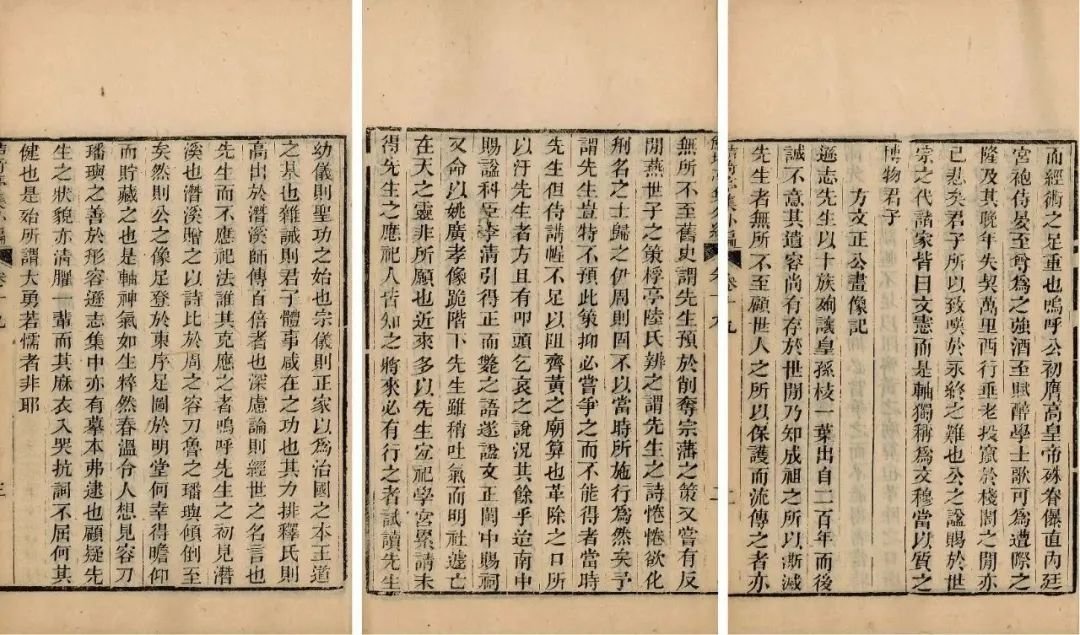 而經術之足重也嗚呼公初膺高皇帝殊眷儤直內廷
宮袍侍晏至尊為之強酒至賦醉學士歌可為遭際之
隆及其晚年失契萬里西行垂老投竄於棧閣之閒亦
已悲矣君子所以致嘆於永終之難也公之諡賜於世
宗之代諸家皆曰文憲而是軸獨稱為文穆當以質之
博物君子
方文正公畫像記
遜志先生以十族殉讓皇孫枝一葉出自二百年而後
誠不意其遺容尚有存於世閒乃知成祖之所以澌滅
先生者無所不至顧世人之所以保護而流傳之者亦
卷十九
二
無所不至舊史謂先生預於削奪宗藩之策又嘗有反
閒燕世子之策桴亭陸氏辨之謂先生之詩惓惓欲化
刑名之士歸之伊周則固不以當時所施行為然矣予
謂先生豈特不預此策抑必嘗爭之而不能得者當時
先生但侍講幄不足以阻齊黃之廟算也革除之口所
以汙先生者方且有叩頭乞哀之說況其餘乎迨南中
賜諡科臣李清引得正而斃之語遂諡文正閩中賜祠
又命以姚廣孝像跪階下先生雖稍吐氣而明社遽亡
在天之靈非所願也近來多以先生宜祀學宮累請未
得先生之應祀人皆知之將來必有行之者試讀先生
幼儀則聖功之始也宗儀則正家以為治國之本王道
之基也雜誡則君子體事咸在之功也其力排釋氏則
高出於潛溪師傳自倍者也深慮論則經世之名言也
先生而不應祀法誰其克應之者嗚呼先生之初見潛
溪也潛溪贈之以詩比於周之容刀魯之璠璵傾倒至
矣然則公之像足登於東序足圖於明堂何幸得瞻仰
而貯藏之也是軸神氣如生粹然春溫令人想見容刀
璠璵之善於形容遜志集中亦有摹本弗逮也顧疑先
生之狀貌亦清臞一輩而其麻衣入哭抗詞不屈何其
健也是殆所謂大勇若懦者非耶
卷十九
三